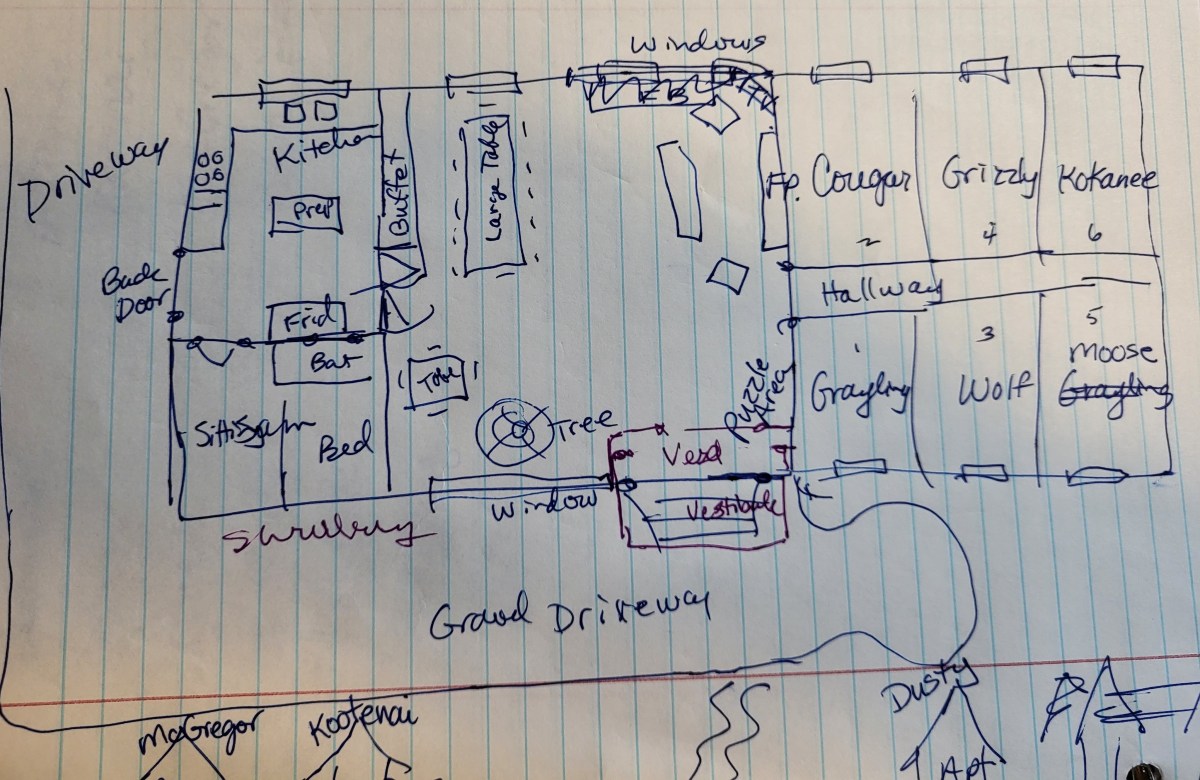 Windows
Driveway
Kitchen
Prep
Buffet
Large Table
TV
F.p.
Cougar
2
Grizzly
4
Kokanee
6
Back
Door
Hallway
Frid
Bat
Table
Puzzle
Area
1
Grayling
3
Wolf
5
Moose
Grayling
Bed
Tree
Vesd
Window
Vestibule
Driveway
McGregor
Kootenai
Dusty
Apt